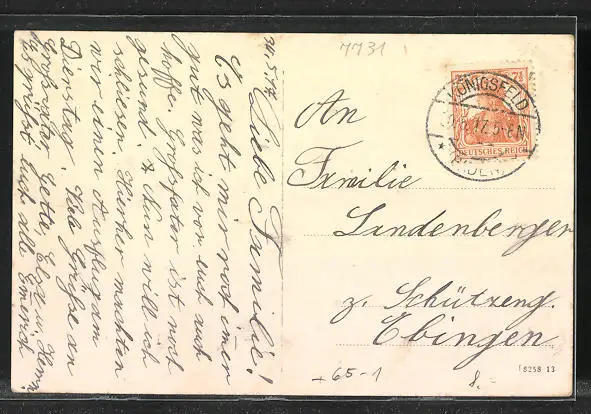 7731
30.5.17
Liebe Familie!
Es geht mir noch immer
gut was ich von euch auch
hoffe. Großfater ist noch
gesund. & Nun will ich
schliesen. Hierher machten
wir einen Ausflug am
Dienstag. Viele Grüße an
Großväter, Gette, Elsa u.
Es grüßt Euch alle
KÖNIGSFELD
17.5-6N
DEUTSCHES REICH
An
Familie
Landenberger
z. Schützeng.
Ebingen
+65-1
8.
8258 13